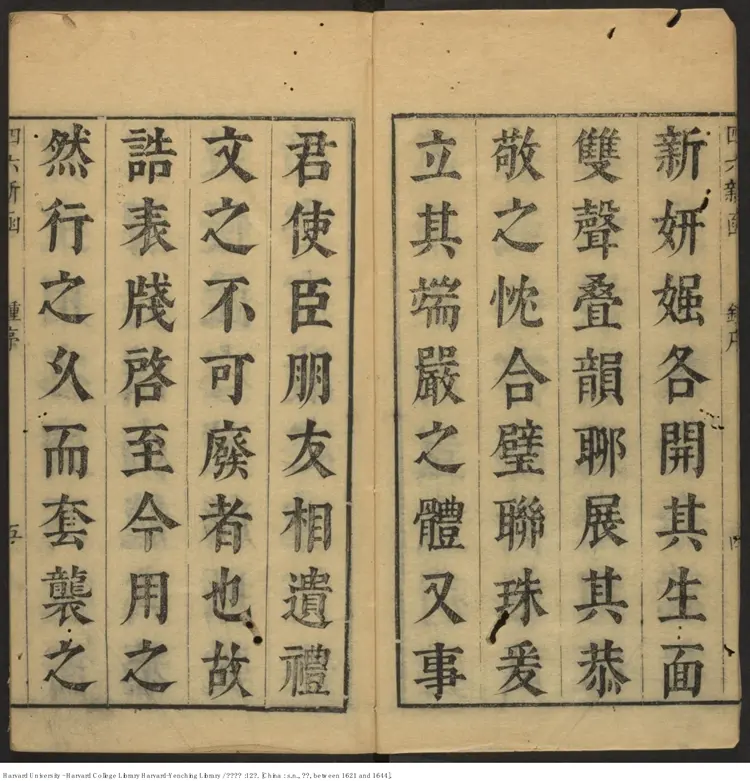 四六新函 鍾序 四
新妍嫋各開其生面
雙聲叠韻聊展其恭
敬之忱合璧聯珠爰
立其端嚴之體又事
君使臣朋友相遺禮
文之不可廢者也故
誥表牋啓至今用之
然行之久而套襲之
四六新函 鍾序 五
Harvard University - Harvard College Library Harvard-Yenching Library / ???? : 12?, [China : s.n., ??, between 1621 and 1644].